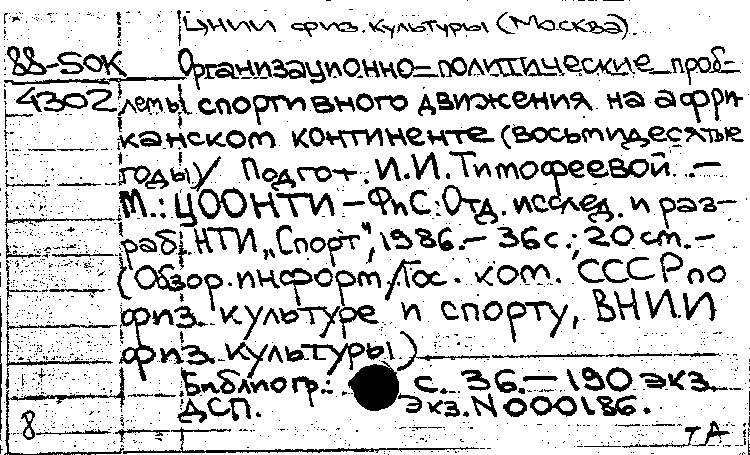 ЦНИИ физ. культуры (Москва).
88-50К Организационно-политические проб-
4302 лемы спортивного движения на афри-
канском континенте (восьмидесятые
годы) / Подгот. И.И. Тимофеевой. —
М.: ЦООНТИ — ФиС: Отд. исслед. и раз-
раб. НТИ „Спорт", 1986. — 36 с.; 20 см. —
(Обзор. информ. / Гос. ком. СССР по
физ. культуре и спорту, ВНИИ
физ. культуры)
Библиогр.: с. 36. — 190 экз.
ДСП. Экз. N 000186.
8 ТА